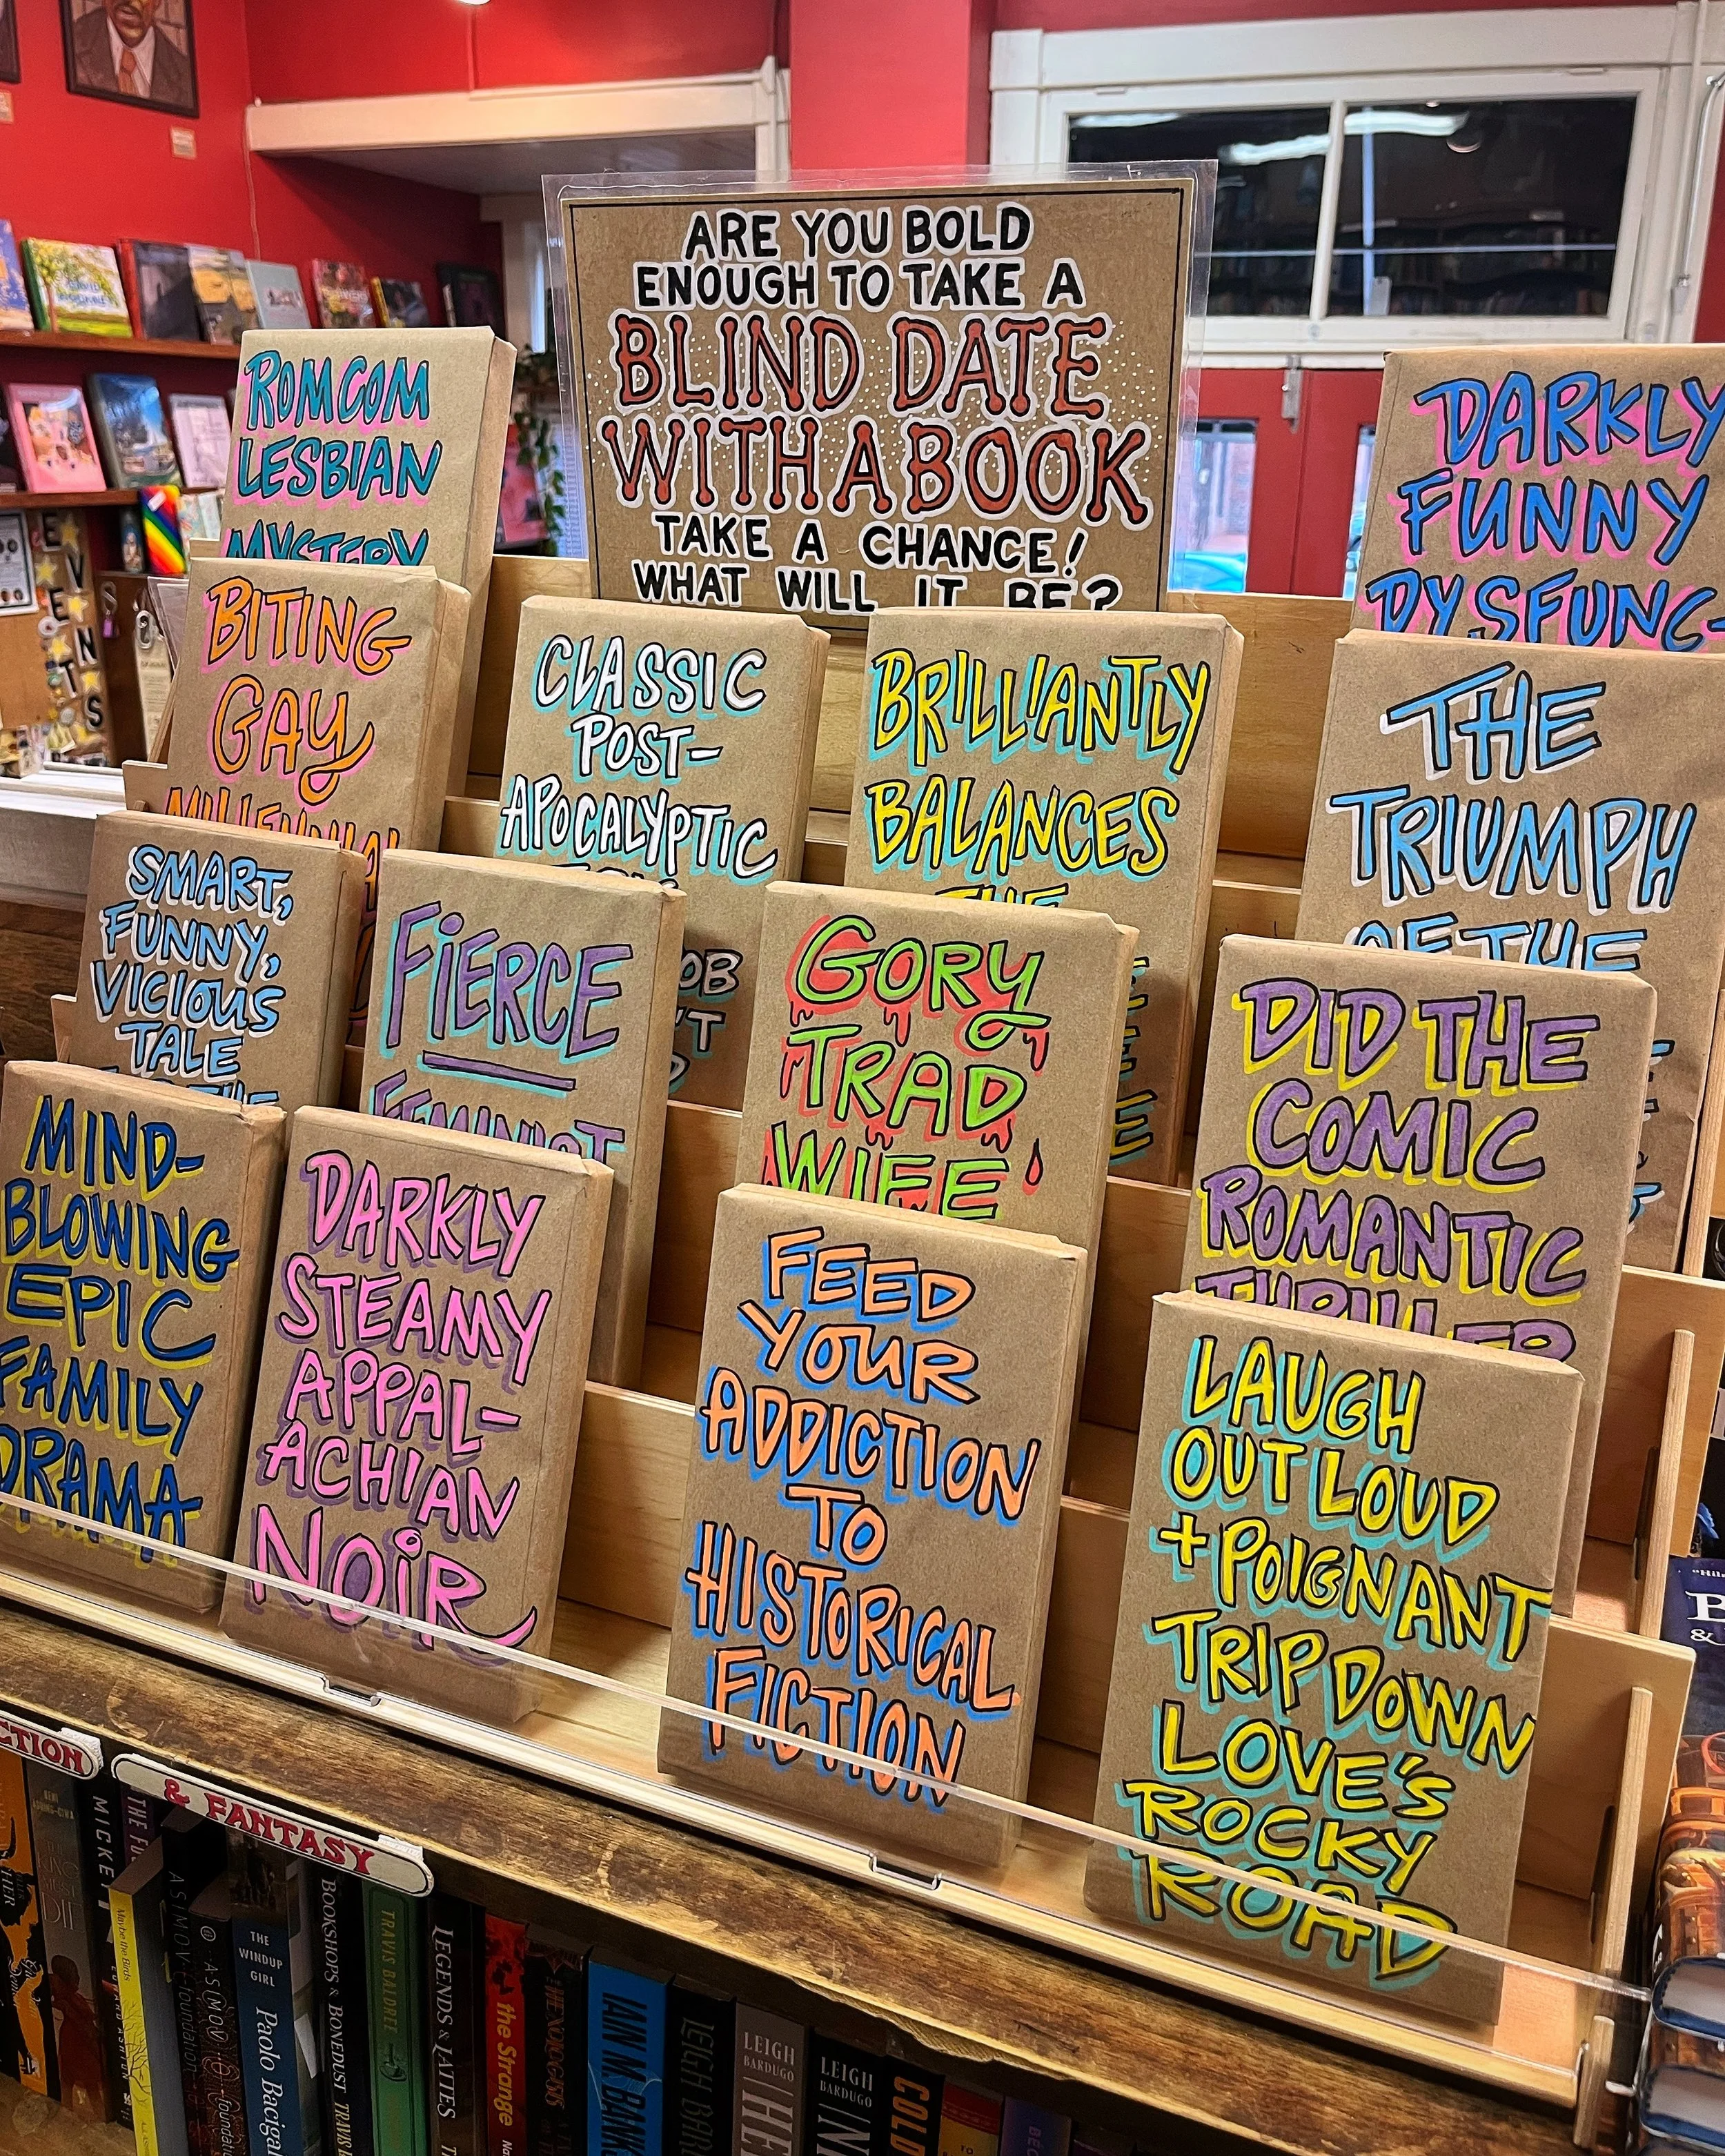 ARE YOU BOLD
ENOUGH TO TAKE A
BLIND DATE
WITH A BOOK
TAKE A CHANCE!
WHAT WILL IT BE?
ROMCOM
LESBIAN
MYSTERY
DARKLY
FUNNY
DYSFUNC-
BITING
GAY
MILLENNIAL
CLASSIC
POST-
APOCALYPTIC
BRILLIANTLY
BALANCES
THE
THE
TRIUMPH
OF THE
SMART,
FUNNY,
VICIOUS
TALE
FIERCE
FEMINIST
GORY
TRAD
WIFE
DID THE
COMIC
ROMANTIC
THRILLER
MIND-
BLOWING
EPIC
FAMILY
DRAMA
DARKLY
STEAMY
APPAL-
ACHIAN
NOIR
FEED
YOUR
ADDICTION
TO
HISTORICAL
FICTION
LAUGH
OUT LOUD
+ POIGNANT
TRIP DOWN
LOVE'S
ROCKY
ROAD
EVENTS
CTION
& FANTASY
MICKE
ASIMOV foundation
ASIMOV foundation
THE
WINDUP
GIRL
Paolo Bacigal
BOOKSHOPS & BONEDUST TRAVIS
TRAVIS BALDREE
LEGENDS & LATTES
the Strange
IAIN M. BANKS
LEIGH BAR
LEIGH
BARDUGO
LEIGH
BARDUGO
COLD